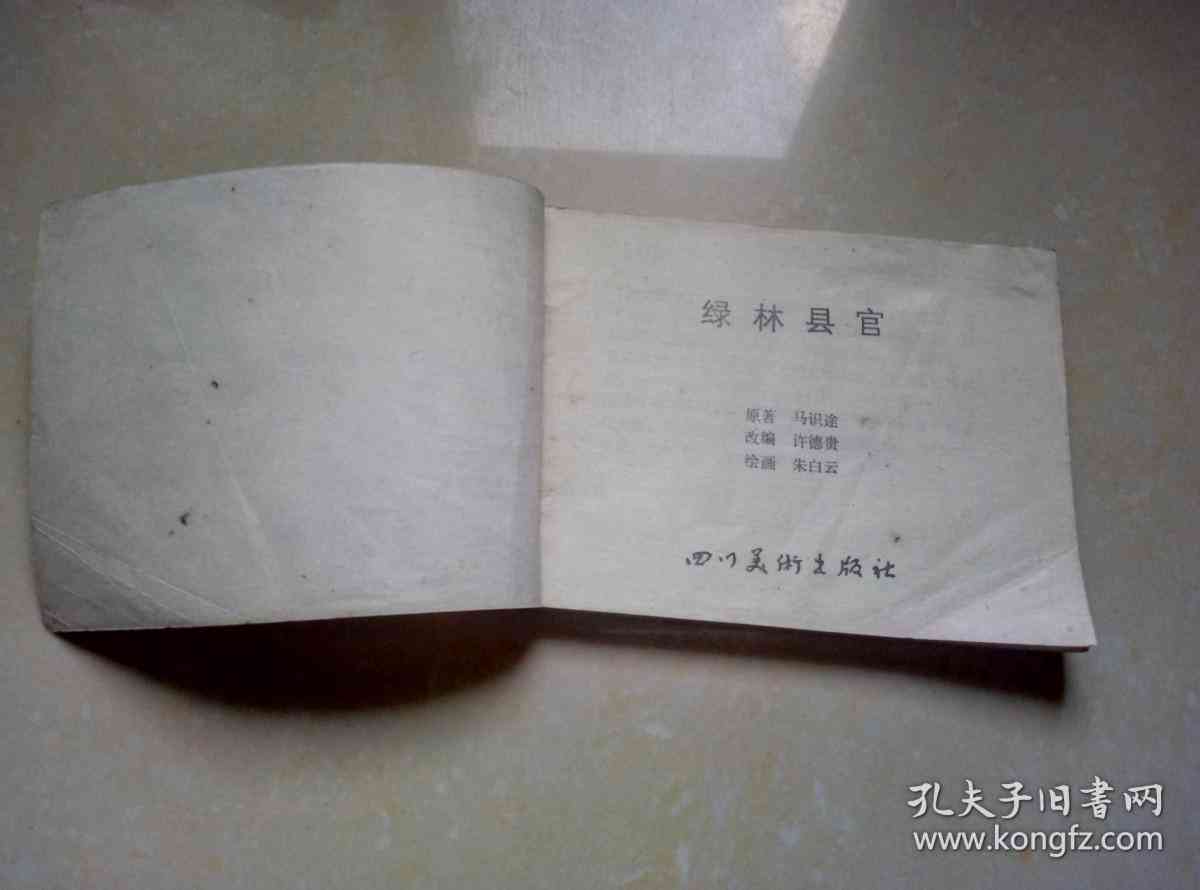 绿林县官
原著 马识途
改编 许德贵
绘画 朱白云
四川美術出版社
孔夫子旧書网
www.kongfz.com